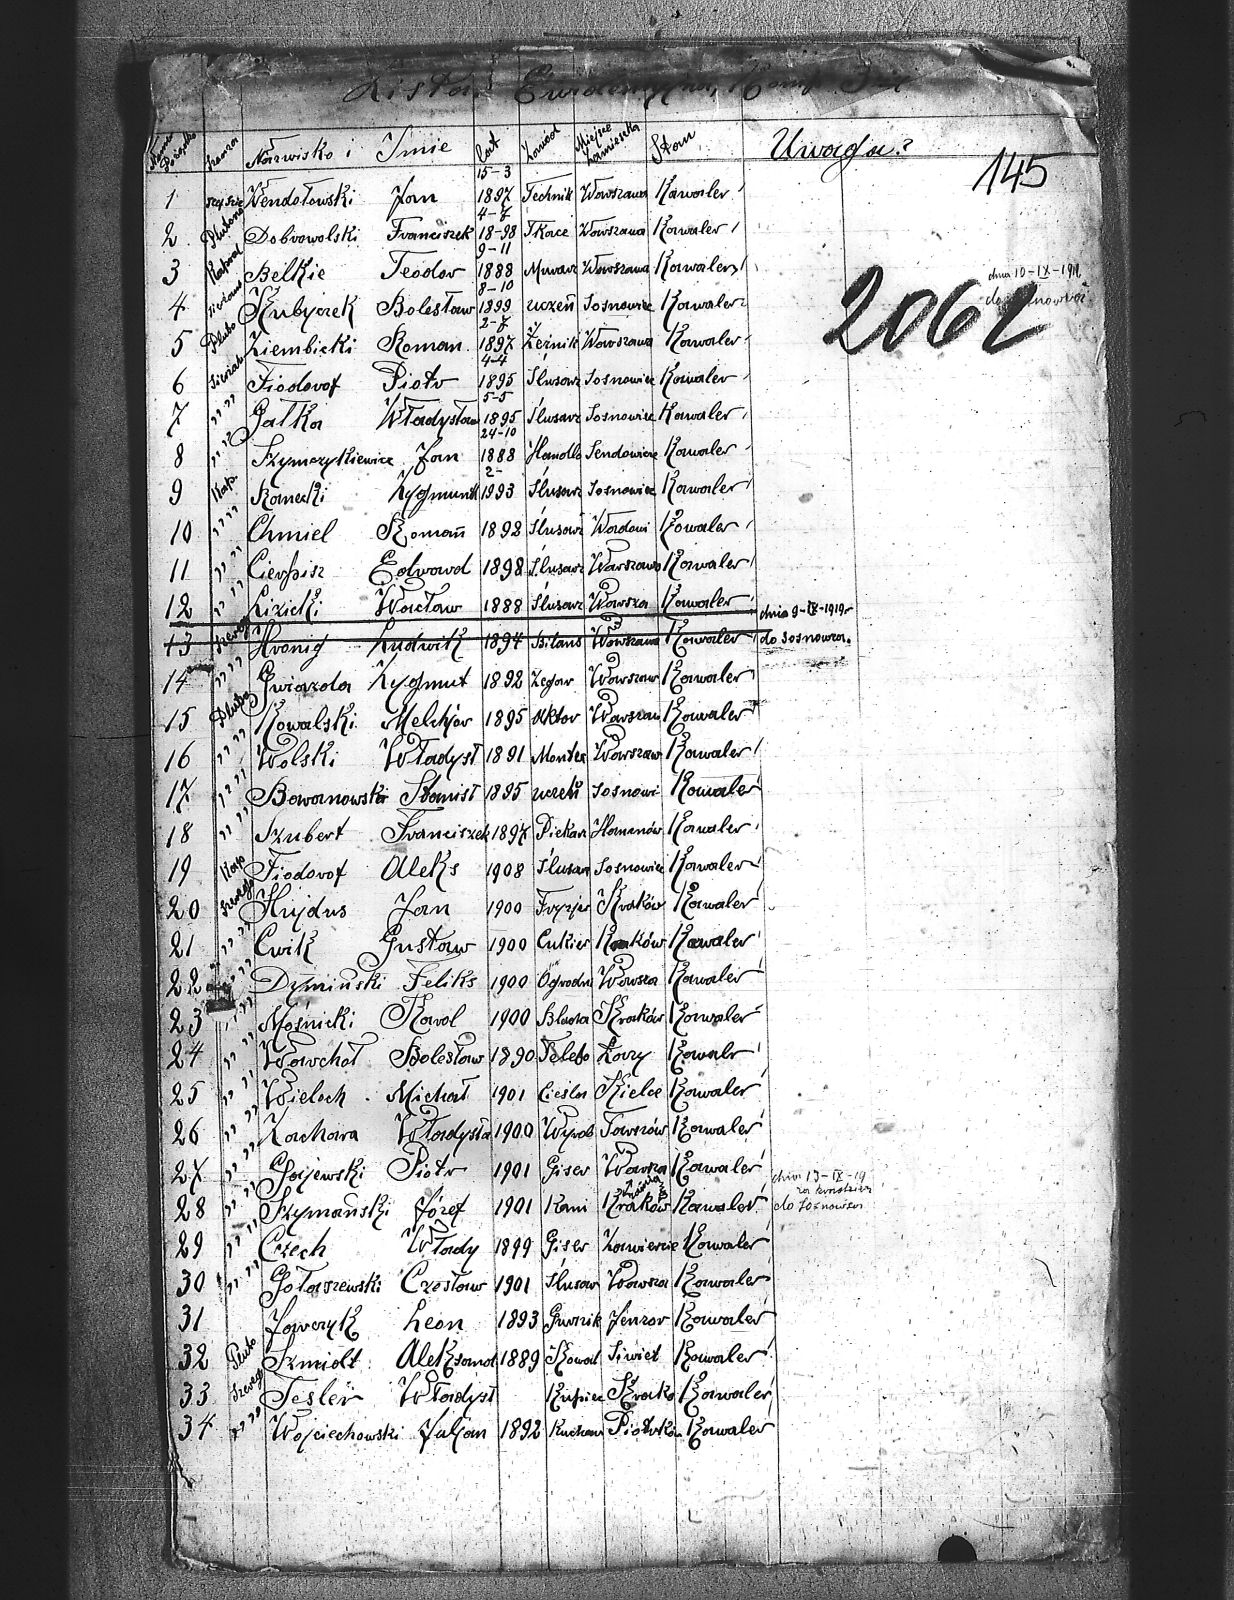 Lista Ewidencyjna, Komp.
Numer Porządko Szarża Nazwisko i Imie Lat Zawód Miejsce Zamieszka Stan Uwaga?
145
15-3
1 Wendołowski Jan 1897 Technik Warszawa Kawaler
4-7
2 Plutono Dobrowolski Franciszek 18-98 Tkacz Warszawa Kawaler
9-11
3 Kapral Belkie Teodor 1888 Murarz Warszawa Kawaler
dnia 10-IX-1919
8-10
4 Kubyczek Bolesław 1899 uczeń Sosnowiec Kawaler
do Sosnowca
2062
2-7
5 Pluto Ziembicki Roman 1897 Warszawa Kawaler
4-4
6 Fiodorof Piotr 1895 Ślusarz Sosnowiec Kawaler
5-5
7 " " Gałka Władysław 1895 Ślusarz Sosnowiec Kawaler
24-10
8 " " Szymczykiewicz Jan 1888 Handlo Sendowicze Kawaler
2-
9 Kap. Konecki Zygmunt 1993 Ślusarz Sosnowiec Kawaler
10 " " Chmiel Roman 1892 Ślusarz Kawaler
11 " " Cierpisz Edward 1898 Ślusarz Warszawa Kawaler
12 " " Lizicki Wacław 1888 Ślusarz Warsza Kawaler
dnia 9-IX-1919r
13 Szereg Hronig Ludwik 1894 Warszawa Kawaler do Sosnowca.
14 " " Gwiazda Zygmut 1892 Zegar Warszaw Kawaler
15 Pluto Kowalski Melchjor 1895 Aktor Warszaw Kawaler
16 " " Wolski Władysł 1891 Monter Warszaw Kawaler
17 " " Baranowski Stanisł 1895 uczeń Sosnowi Kawaler
18 " " Szubert Franciszek 1897 Piekar Kawaler
19 Kap Fiodorof Aleks 1908 Ślusar Sosnowiec Kawaler
20 Szereg Hujdus Jan 1900 Fryzjer Kraków Kawaler
21 " " Cwik Gustaw 1900 Cukier Kraków Kawaler
22 " " Dymiński Feliks 1900 Ogrodni Warsza Kawaler
23 " " Mośnicki Karol 1900 Blacha Kraków Kawaler
24 " " Warchoł Bolesław 1890 Telefo Kawalr
25 " " Wieloch Michał 1901 Cieśla Kielce Kawaler
26 " " Zachara Władysła 1900 Wyrob Tarnów Kawaler
27 " " Gajewski Piotr 1901 Giser Warsza Kawaler
dnia 13-IX-19
28 " " Szymański Józef 1901 Kami Kraków Kawaler
do Sosnowca
29 " " Czech Włady 1899 Giser Zawiercie Kawaler
30 " " Gołaszewski Czesław 1901 Ślusar Warsza Kawaler
31 Jawczyk Leon 1893 Gurnik Jenzor Kawaler
32 Pluto Szmidt Aleksand 1889 Kowal Kawaler
33 Szereg Tesler Władysł Kupiec Krako Kawaler
34 " " Wojciechowski Juljan 1892 Kuchar Piotrków Kawaler